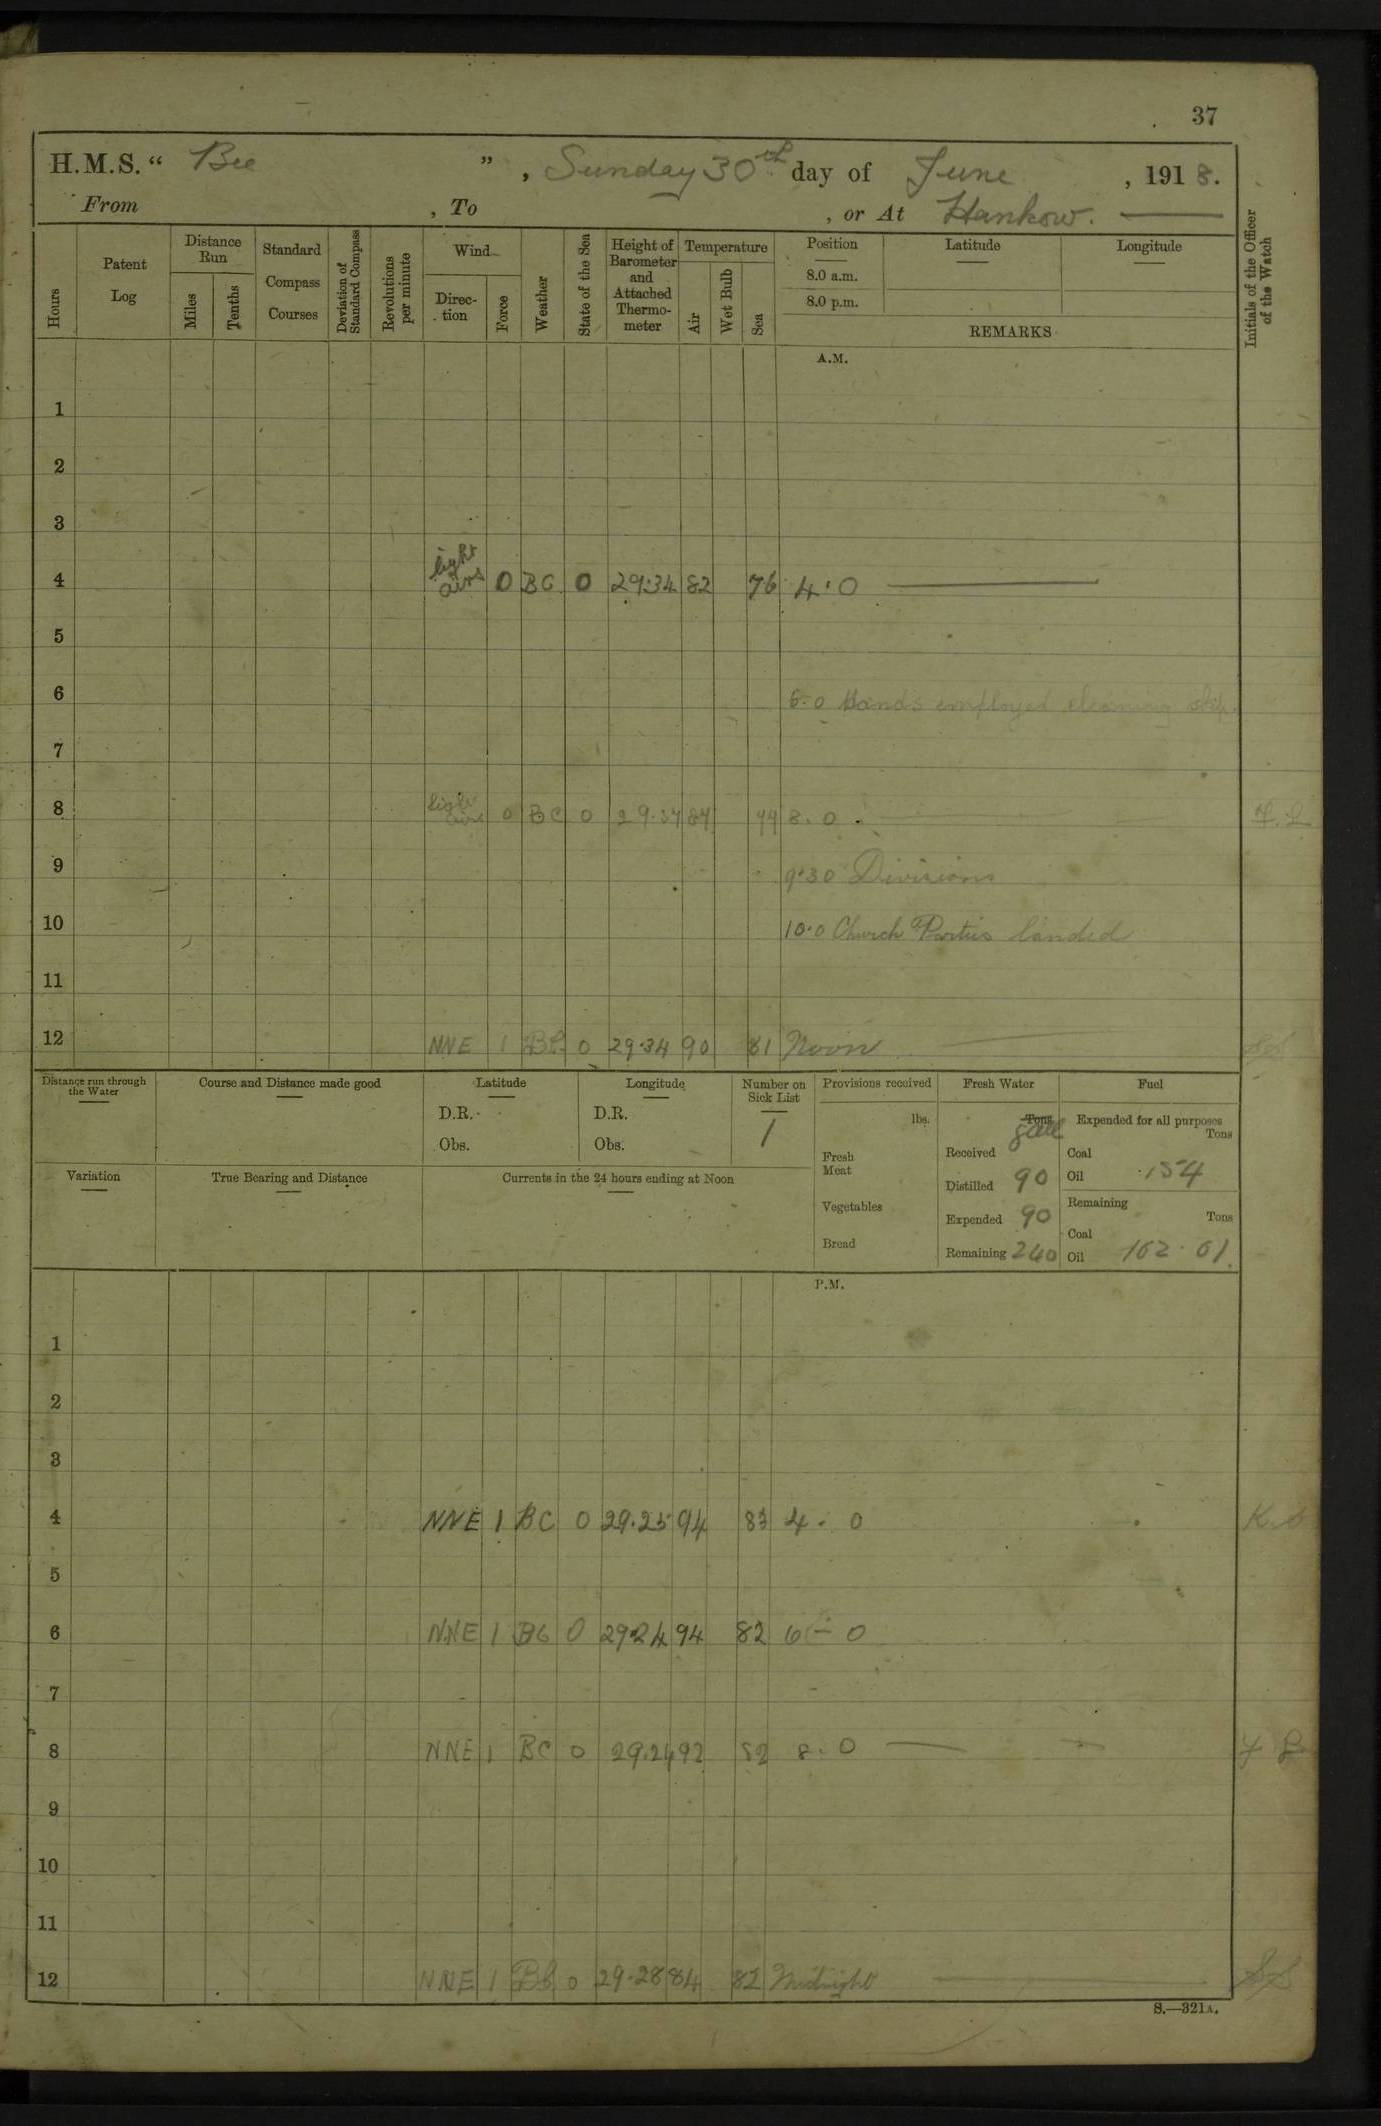 37
H.M.S. “ Bee ” , Sunday 30th day of June , 1918.
From , To , or At Hankow.
Hours
Patent Log
Distance Run
Miles
Tenths
Standard Compass Courses
Deviation of Standard Compass
Revolutions per minute
Wind
Direc-tion
Force
Weather
State of the Sea
Height of Barometer and Attached Thermo-meter
Temperature
Air
Wet Bulb
Sea
Position
8.0 a.m.
8.0 p.m.
Latitude
Longitude
REMARKS
Initials of the Officer of the Watch
A.M.
1
2
3
4 light airs 0 BC 0 29.34 82 76 4.0
5
6 6.0 Hands employed cleaning ship.
7
8 light airs 0 BC 0 29.37 87 8.0 .
9 9.30 Divisions
10 10.0 Church Parties landed
11
12 NNE 1 0 29.34 90 81 Noon
Distance run through the Water
Course and Distance made good
Latitude
D.R.
Obs.
Longitude
D.R.
Obs.
Number on Sick List
1
Provisions received
lbs.
Fresh Meat
Vegetables
Bread
Fresh Water
Tons
Received
Distilled 90
Expended 90
Remaining 240
Fuel
Expended for all purposes
Tons
Coal
Oil .154
Remaining
Tons
Coal
Oil 162.61
Variation
True Bearing and Distance
Currents in the 24 hours ending at Noon
P.M.
1
2
3
4 NNE 1 BC 0 29.25 94 83 4.0
5
6 NNE 1 BC 0 29.24 94 82 6-0
7
8 NNE 1 BC 0 29.24 92 82 8.0
9
10
11
12 NNE 1 0 29.28 84 82 Midnight
S.—321A.